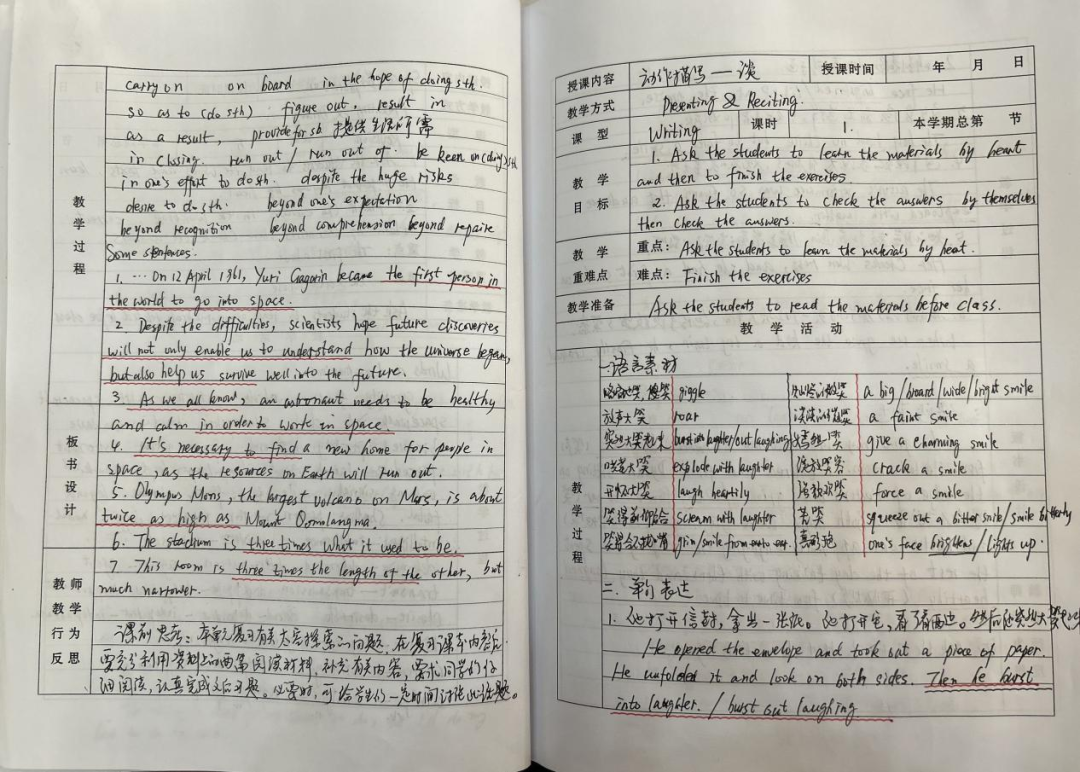 carry on on board in the hope of doing sth.
so as to (do sth) figure out. result in
as a result, provide for sb 提供生活所需
in closing. run out / run out of. be keen on (doing) sth
in one's effort to do sth. despite the huge risks
desire to do sth. beyond one's expectation
beyond recognition beyond comprehension beyond repaire
Some sentences.
1. … On 12 April 1961, Yuri Gagarin became the first person in
the world to go into space.
2. Despite the difficulties, scientists hope future discoveries
will not only enable us to understand how the universe began,
but also help us survive well into the future.
3. As we all know, an astronaut needs to be healthy
and calm in order to work in space.
4. It's necessary to find a new home for people in
space, as the resources on Earth will run out.
5. Olympus Mons, the largest volcano on Mars, is about
twice as high as Mount Qomolangma.
6. The stadium is three times what it used to be.
7. This room is three times the length of the other, but
much narrower.
教学过程
板书设计
教师教学行为反思
课前思考：本单元复习有关太空探索的问题，在复习课本内容后
要充分利用资料上的两篇阅读材料，补充有关内容，要求同学们仔
细阅读，认真完成文后习题。必要时，可给学生们一定时间讨论此话题。
授课内容 动作描写—谈 授课时间 年 月 日
教学方式 Presenting & Reciting.
课型 Writing 课时 1. 本学期总第 节
教学目标 1. Ask the students to learn the materials by heart
and then to finish the exercises.
2. Ask the students to check the answers by themselves
then check the answers.
教学重难点 重点: Ask the students to learn the materials by heat.
难点: Finish the exercises
教学准备 Ask the students to read the materials before class.
教学活动
教学过程
一、语言素材
giggle a big/broad/wide/bright smile
放声大笑 roar a faint smile
burst into laughter/out laughing give a charming smile
explode with laughter crack a smile
开怀大笑 laugh heartily force a smile
scream with laughter 苦笑 squeeze out a bitter smile/smile bitterly
grin/smile from ear to ear. one's face brightens/lights up.
二、单句表达
1. 他打开信封，拿出一张纸。他打开它，看了看两边。然后他突然大笑起来
He opened the envelope and took out a piece of paper.
He unfolded it and look on both sides. Then he burst
into laughter. / burst out laughing.